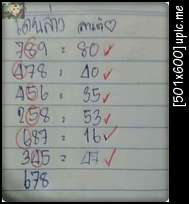 789 = 80 ✓
478 = 40 ✓
456 = 35 ✓
258 = 53 ✓
687 = 16 ✓
345 = 47 ✓
678
[501x600] upic.me